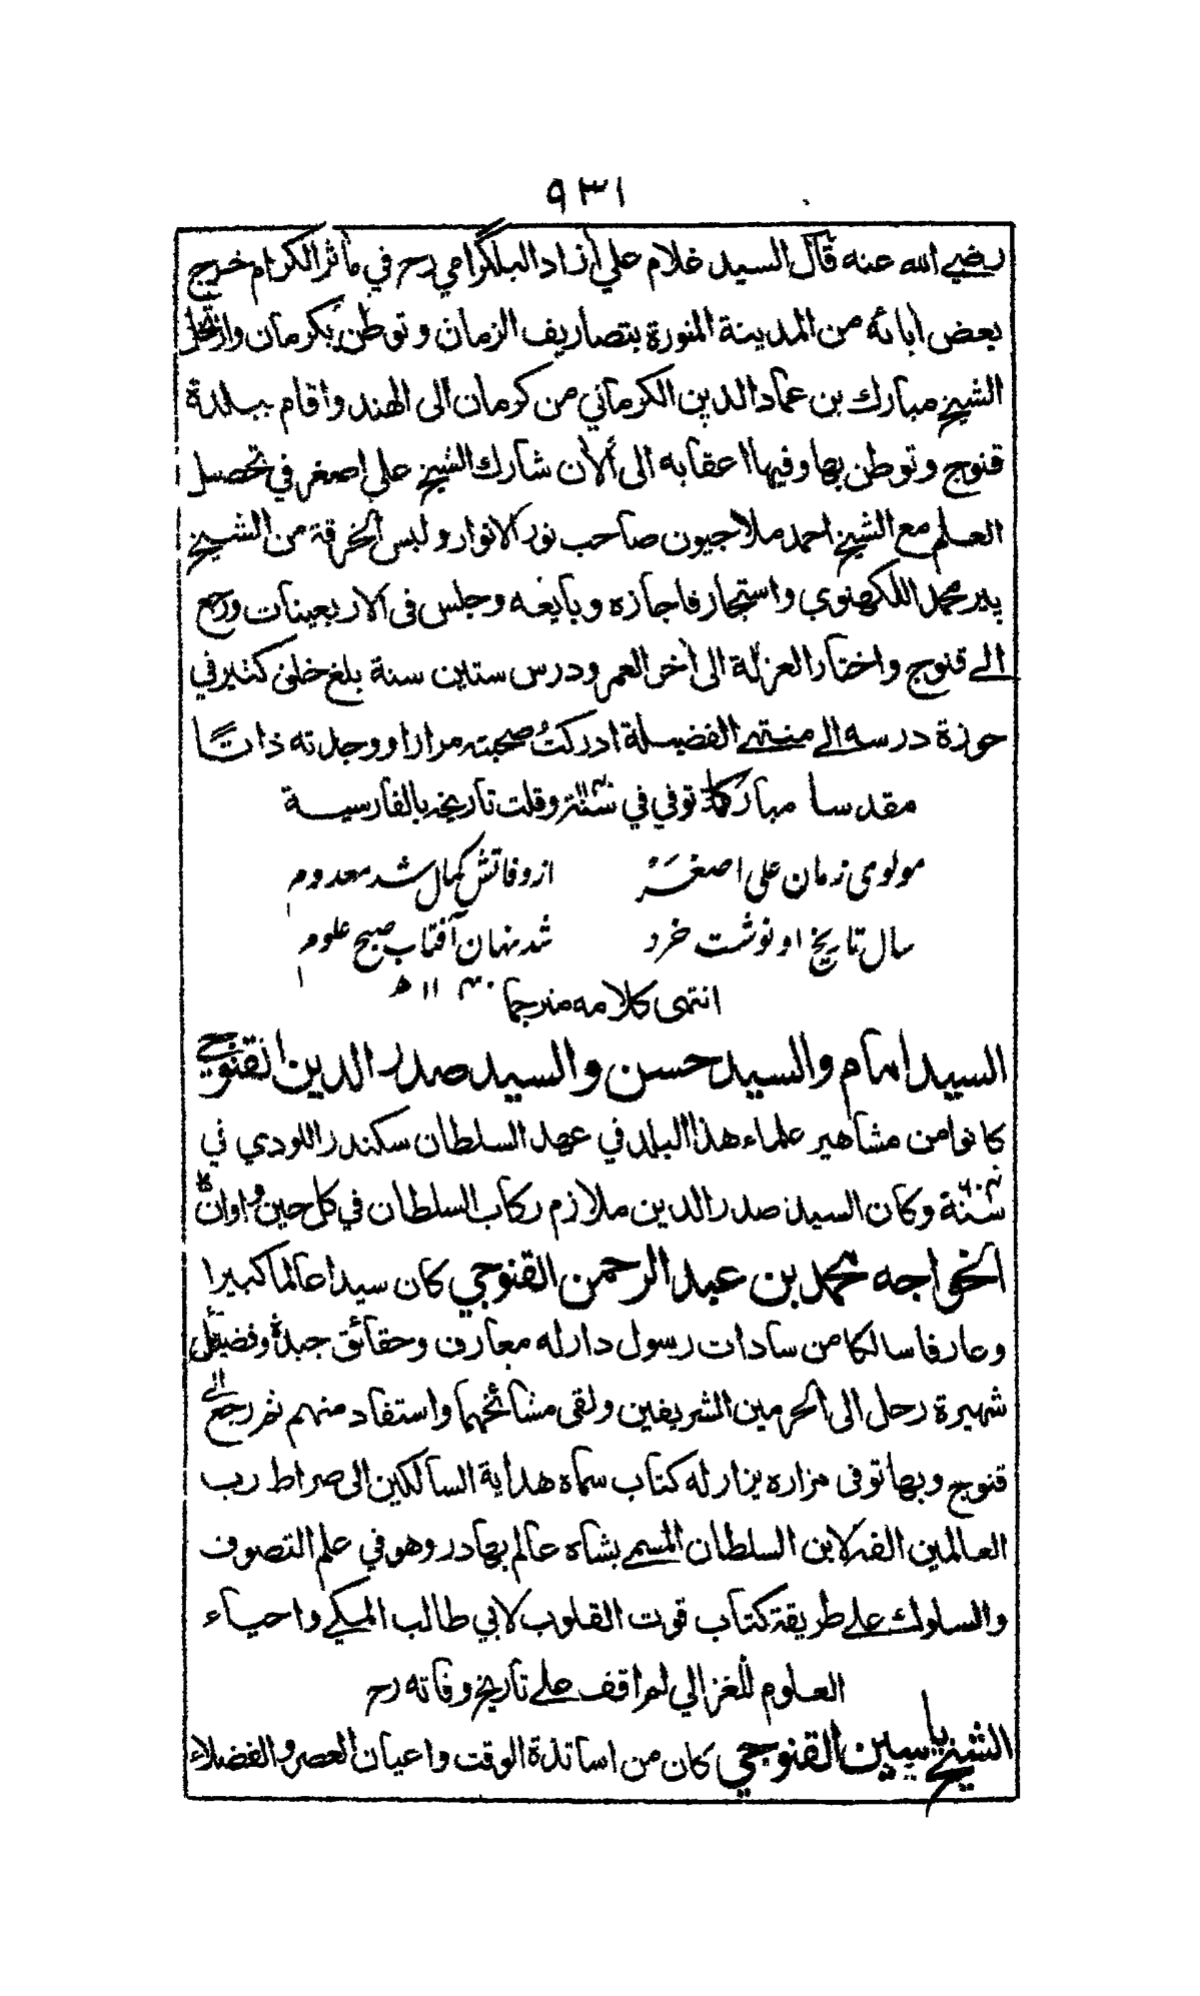 ٩٣١
رضي الله عنه قال السيد غلام علي أزاد البلگرامي رح في مأثر الكرام خرج
بعض أبائه من المدينة المنورة بتصاريف الزمان وتوطن بكرمان وارتحل
الشيخ مبارك بن عماد الدين الكرماني من كرمان الى الهند واقام ببلدة
قنوج وتوطن بها وفيها اعقابه الى ألأن شارك الشيخ علي اصغر في تحصيل
العلم مع الشيخ احمد ملاجيون صاحب نور الانوار ولبس الخرقة من الشيخ
پير محمد اللكهنوي واستجاز فاجازه وبايعه وجلس في الاربعينات ورجع
الى قنوج واختار العزلة الى أخر العمر ودرس ستين سنة بلغ خلق كثير في
حوزة درسه الى منتهى الفضيلة ادركتُ صحبته مرارا ووجدته ذاتًا
مقدسا مباركا توفي في سنة وقلت تاريخه بالفارسية
مولوی زمان علی اصغر از وفاتش کمال شد معدوم
سال تاریخ او نوشت خرد شد نهان آفتاب صبح علوم
انتهى كلامه مترجما ١١٤٠ ھ
السيد امام والسيد حسن والسيد صدر الدين القنوجي
كانوا من مشاهير علماء هذا البلد في عهد السلطان سكندر اللودي في
سنة وكان السيد صدر الدين ملازم ركاب السلطان في كل حين واوان
الخواجه محمد بن عبد الرحمن القنوجي كان سيدا عالما كبيرا
وعارفا سالكا من سادات رسول دار له معارف وحقائق جبلة وفضيل
شهيرة رحل الى الحرمين الشريفين ولقى مشائخهما واستفاد منهم ثم رجع الى
قنوج وبها توفى مزاره يزار له كتاب سماه هداية السالكين الى صراط رب
العالمين الفه لابن السلطان المسمى بشاه عالم بهادر وهو في علم التصوف
والسلوك على طريقة كتاب قوت القلوب لابي طالب المكي واحياء
العلوم للغزالي لم اقف على تاريخ وفاته رح
الشيخ ياسين القنوجي كان من اساتذة الوقت واعيان العصر والفضلاء